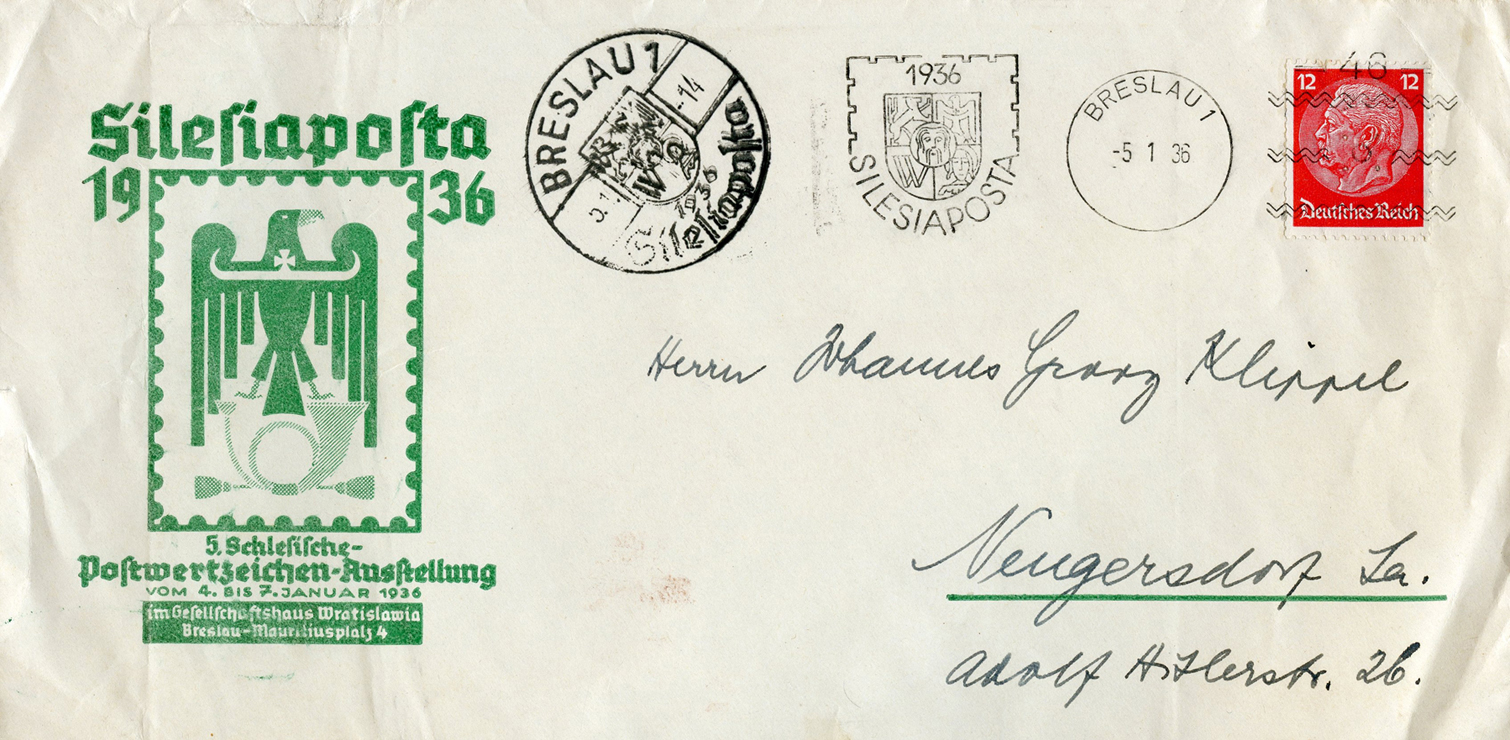 Sileſiapoſta
1936
5. Schleſiſche-
Poſtwertzeichen-Ausſtellung
VOM 4. BIS 7. JANUAR 1936
im Geſellſchaftshaus Wratislawia
Breslau-Mauritiusplatz 4
BRESLAU 1
-14
5.1
1936
Sileſiapoſta
1936
SILESIAPOSTA
BRESLAU 1
-5 1 36
46
12 12
Deutſches Reich
Herrn Johannes Georg Klippel
Neugersdorf Sa.
Adolf Hitlerstr. 26.